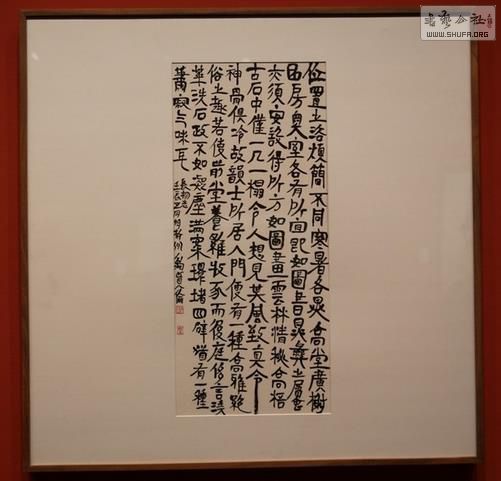 位置之法煩簡不同寒暑各異高堂廣榭
曲房奧室各有所宜即如圖書鼎彝之屬
亦須安設得所方如圖畫雲林清秘高梧
古石中僅一几一榻令人想見其風致真令
神骨俱冷故韻士所居入門便有一種高雅絕
俗之趣若使前堂養雞牧豕而後庭侈言澆
華洗石政不如凝塵滿案環堵四壁猶有一種
蕭寂气味耳
長物志
壬辰正月
書藝公社
WWW.SHUFA.ORG